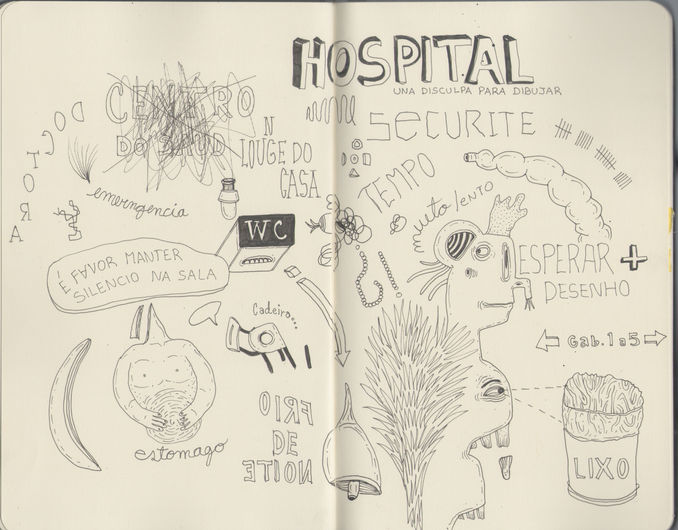 HOSPITAL
UNA DISCULPA PARA DIBUJAR
CENTRO
DO SAUD
DOCTORA
emerngencia
N
LOUGE DO
CASA
SECURITE
TEMPO
muto lento
WC
É FAVOR MANTER
SILENCIO NA SALA
¿!
ESPERAR +
DESENHO
Cadeiro...
Gab. 1 a 5
FRIO
DE
NOITE
estomago
LIXO